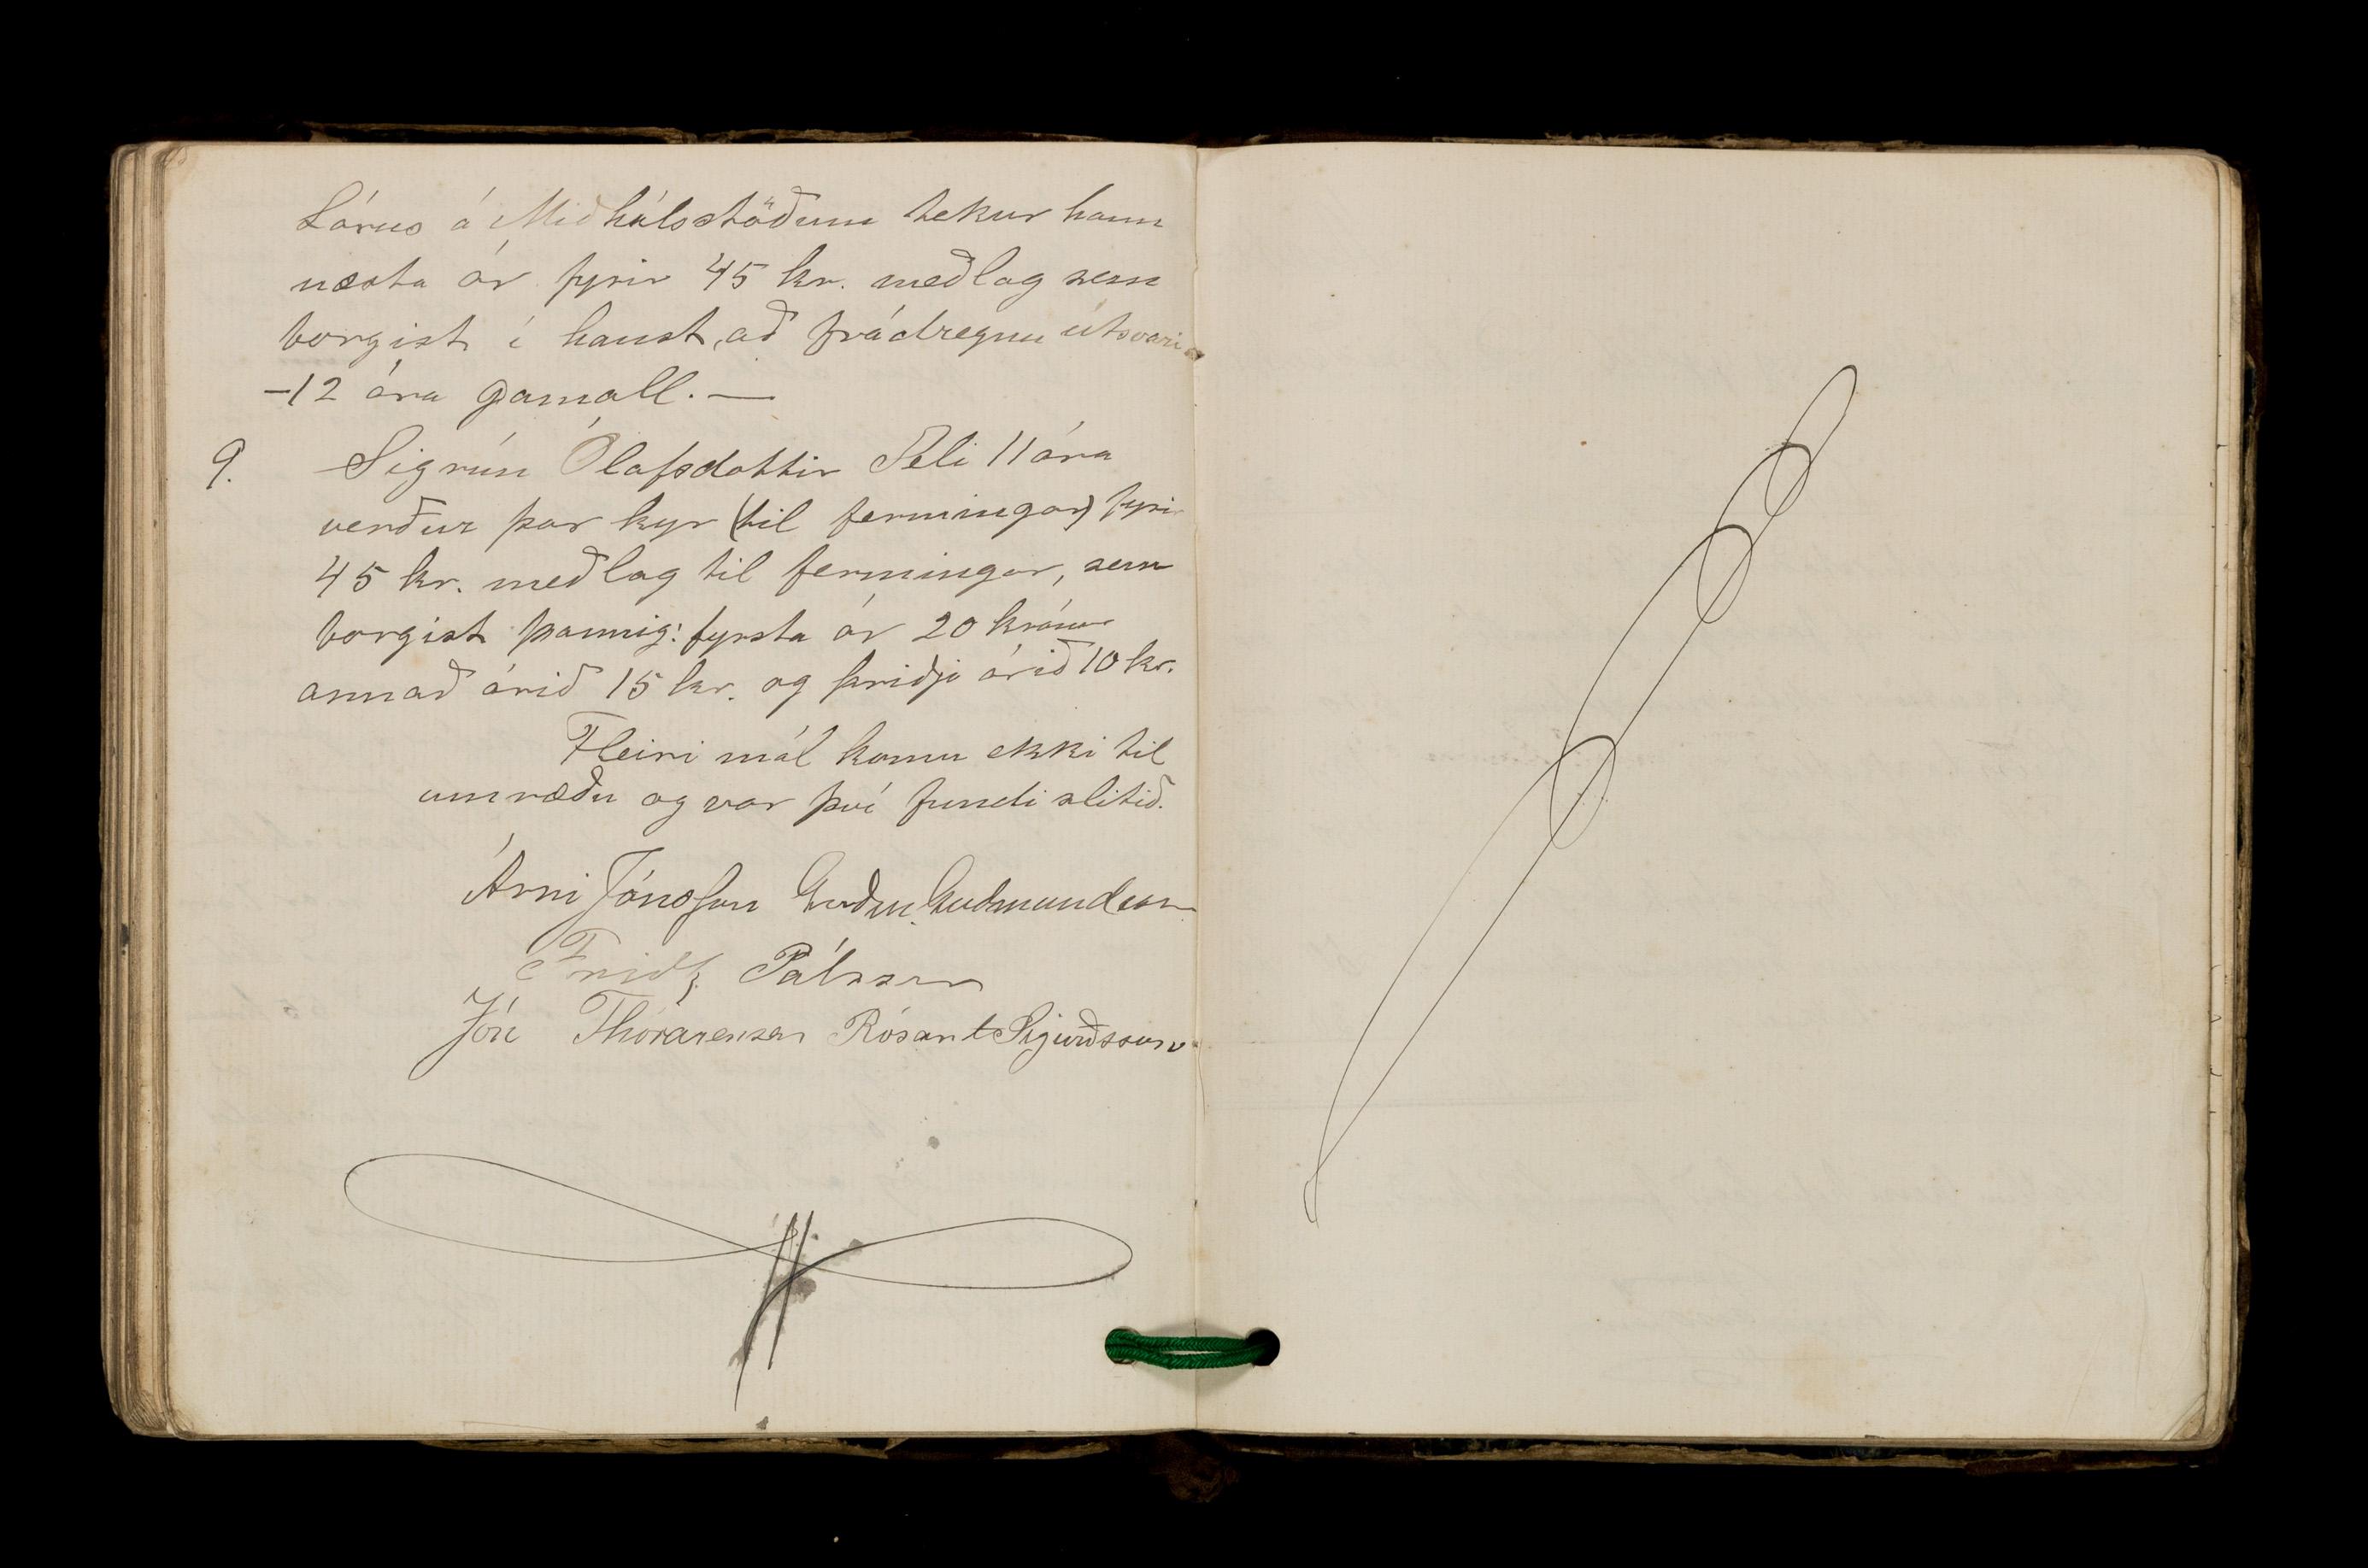 Lárus á Miðhálsstöðum tekur hann
næsta ár fyrir 45 kr. meðlag sem
borgist í haust, að frádregnu útsvari
–12 ára gamall. —
9. Sigrún Ólafsdottir Seli 11 ára
verður þar kyr (til fermingar) fyrir
45 kr. meðlag til fermingar, sem
borgist þannig: fyrsta ár 20 krónur
annað árið 15 kr. og þriðja árið 10 kr.
Fleiri mál komu ekki til
umræðu og var því fundi slitið.
Árni Jónsson Guðm. Guðmundsson
Friðf. Pálsson
Jón Thórarensen Rósant Sigurðsson